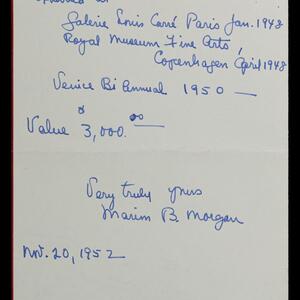 Galerie Louis Carré Paris Jan. 1948
Royal Museum Fine Arts,
Copenhagen April 1948
Venice Bi Annual 1950 —
Value 3,000.00
Very truly yours
B. Morgan
Nov. 20, 1952